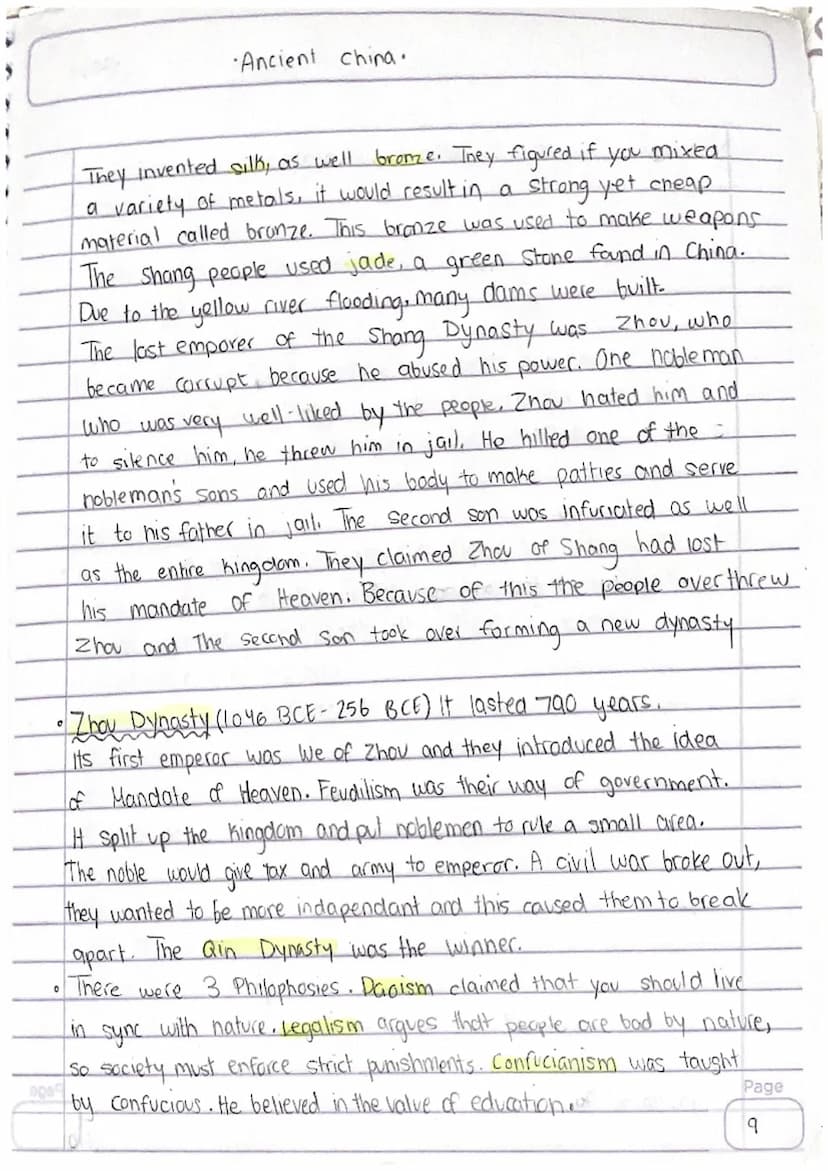 ·Ancient China·
They invented silk, as well bronze. They figured if you mixed
a variety of metals, it would result in a strong yet cheap
material called bronze. This bronze was used to make weapons
The Shang people used jade, a green stone found in China.
Due to the yellow river flooding, many dams were built.
The last emporer of the Shang Dynasty was Zhou, who
became corrupt because he abused his power. One nobleman
who was very well-liked by the people, Zhou hated him and
to silence him, he threw him in jail. He killed one of the
nobleman's sons and used his body to make patties and serve
it to his father in jail. The second son was infuriated as well
as the entire kingdom. They claimed Zhou of Shang had lost
his mandate of Heaven. Because of this the people overthrew
Zhou and The second son took over forming a new dynasty
• Zhou Dynasty (1046 BCE - 256 BCE) It lasted 790 years.
Its first emperor was We of Zhou and they introduced the idea
of Mandate of Heaven. Feudilism was their way of government.
It split up the kingdom and put noblemen to rule a small area.
The noble would give tax and army to emperor. A civil war broke out,
they wanted to be more indapendant and this caused them to break
apart. The Qin Dynasty was the winner.
• There were 3 Philophosies. Daoism claimed that you should live
in sync with nature. Legalism argues that people are bad by nature,
so society must enforce strict punishments. Confucianism was taught
by Confucious. He believed in the value of education.
Page
9